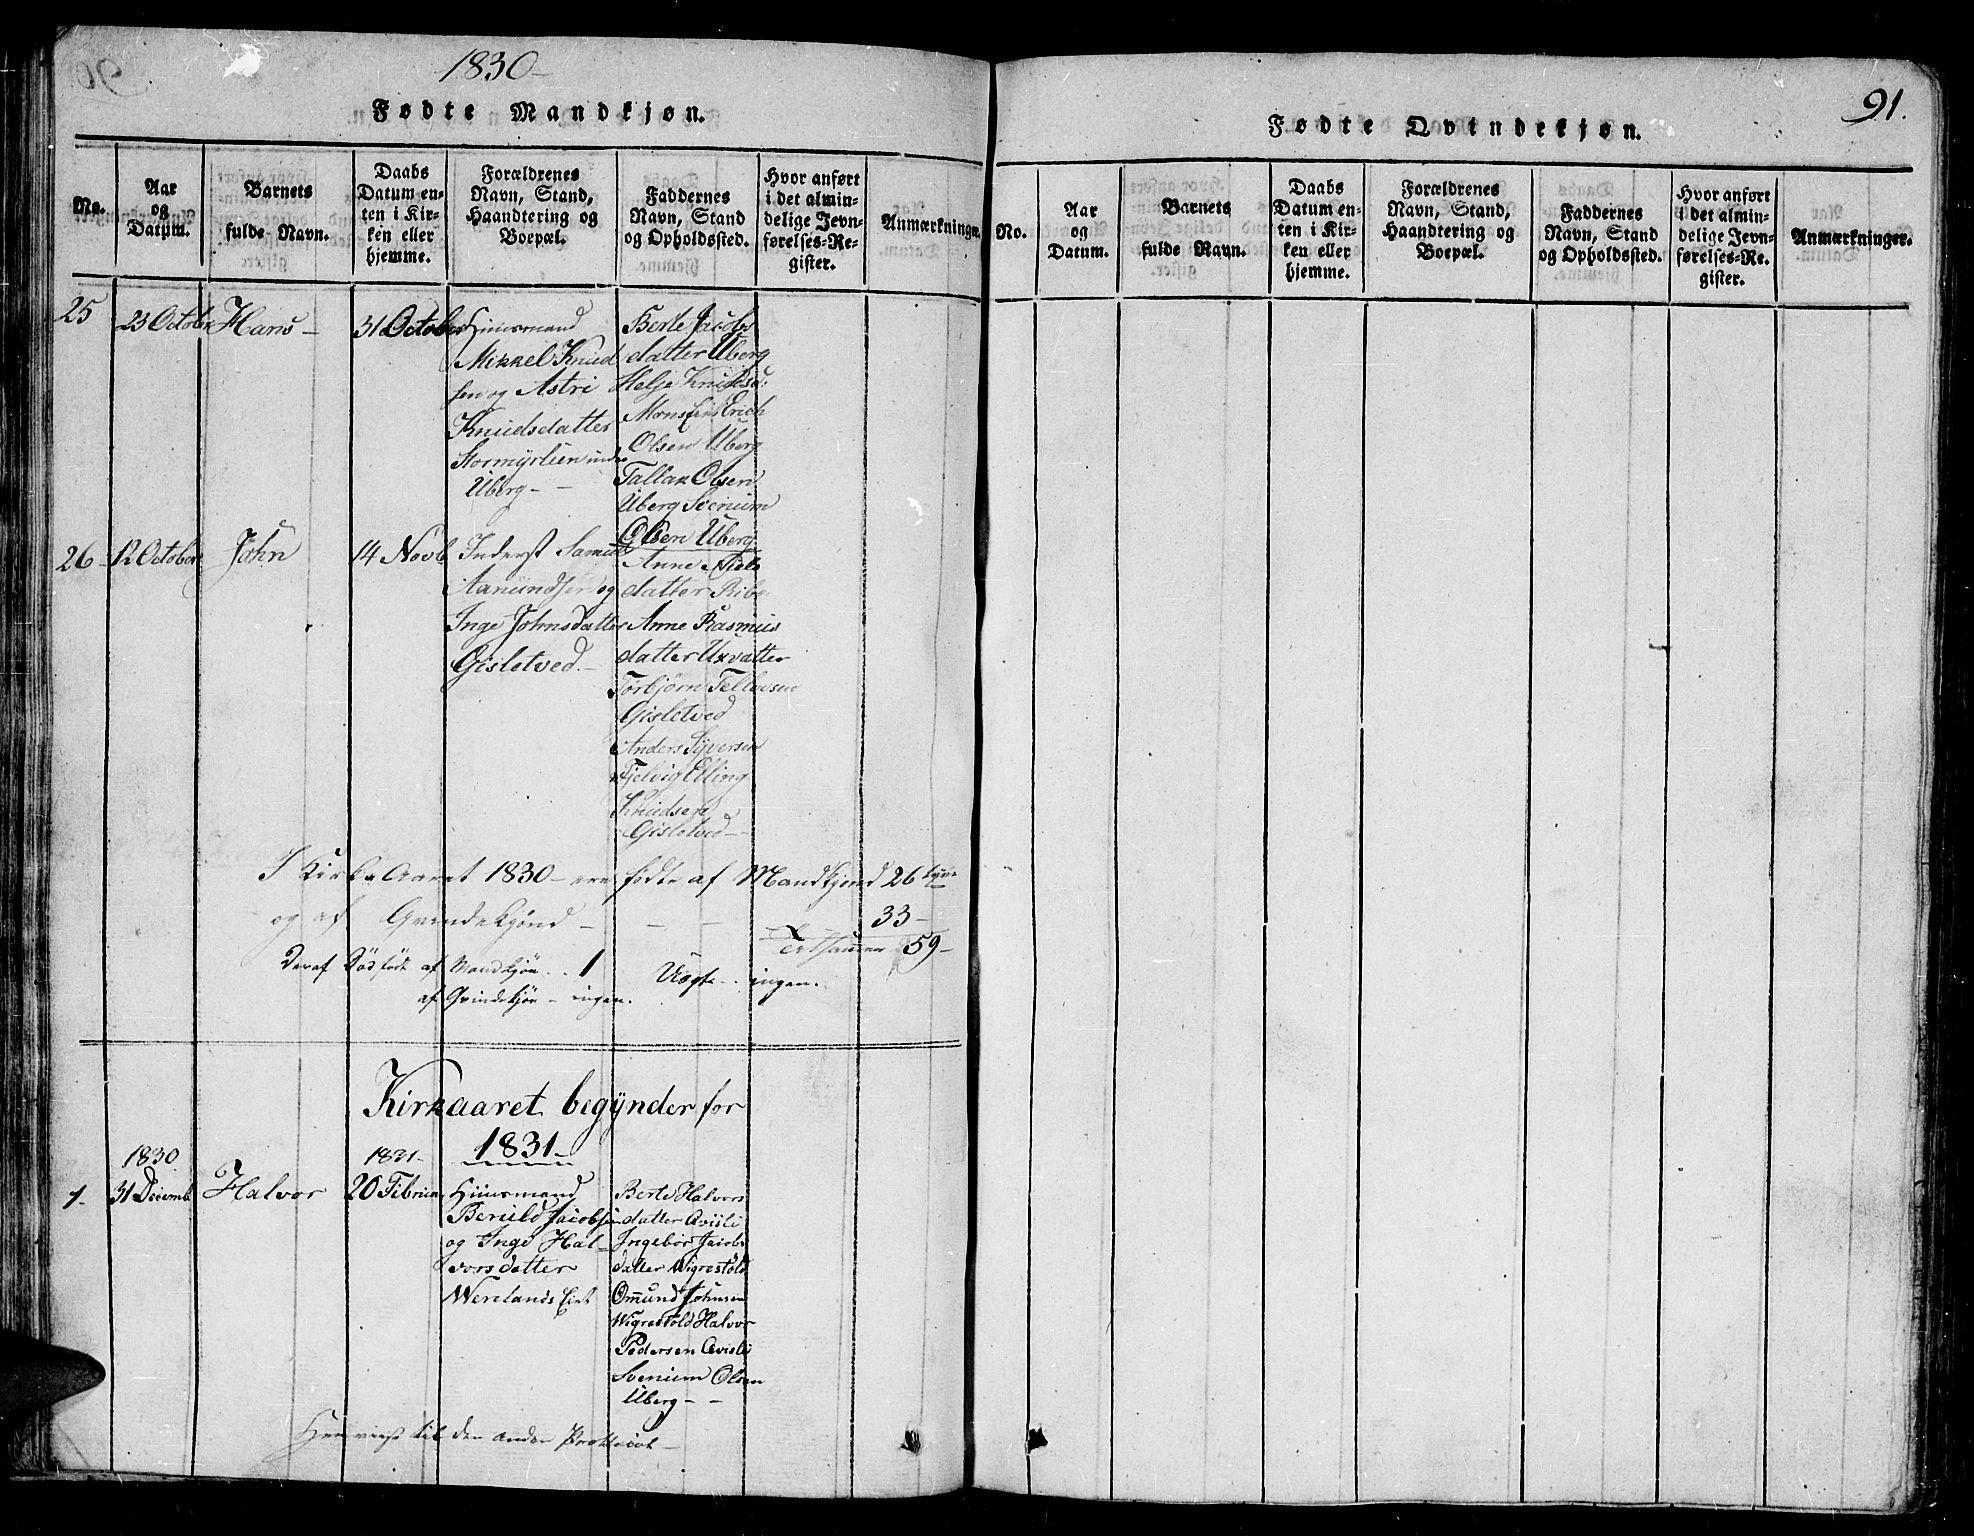 1830
91.
Fødte Mandkjøn.
No.
Aar
og
Datum.
Barnets
fulde Navn.
Daabs
Datum en-
ten i Kir-
ken eller
hjemme.
Forældrenes
Navn, Stand,
Haandtering og
Boepæl.
Faddernes
Navn, Stand
og Opholdssted.
Hvor anført
i det almin-
delige Jevn-
førelses-Re-
gister.
Anmærkninger.
25
23 October
Hans
31 October
Huusmand
Mikkel Knud
sen og Astri
Knudsdatter
Stormyrlien under
Uberg
Berte Jacobs
datter Uberg
Helje Knuds
Erich
Olsen Uberg
Tallak Olsen
Uberg Svenum
Olsen Uberg
26
12 October
John
14 Novb
Inderst
Aanundsen og
Inge Johnsdatter
Gisletved
Anne Niels
datter Ribe
Anne Rasmus
datter Uxvatter
Torbjörn Tellevsen
Gisletved
Anders Syversen
Fjelvig Elling
Knudsen
Gisletved
I Kirke Aaret 1830 ere födte af Mandkjönd 26
og af Qvindekjönd 33
Tilsammen 59
Deraf Dödfödte af Mandkjön .. 1
af Qvindekjön ingen.
Uægte .. ingen.
Kirkaaret begÿnder for
1831
1.
1830
31 Decemb
Halvor
1831
20 Februar
Huusmand
Beruld Jacobsen
og Inge Hal-
vorsdatter
Werelands Eiet
Berte Halvors
datter Qvisli
Ingebor Jacobs
datter Wigrestöld
Omund Johnsen
Wigrestöld Halvor
Pedersen Qvisli
Svenum Olsen
Uberg
Henviist til den anden Protocol
Fødte Qvindekjøn.
No.
Aar
og
Datum.
Barnets
fulde Navn.
Daabs
Datum en-
ten i Kir-
ken eller
hjemme.
Forældrenes
Navn, Stand,
Haandtering og
Boepæl.
Faddernes
Navn, Stand
og Opholdssted.
Hvor anført
i det almin-
delige Jevn-
førelses-Re-
gister.
Anmærkninger.